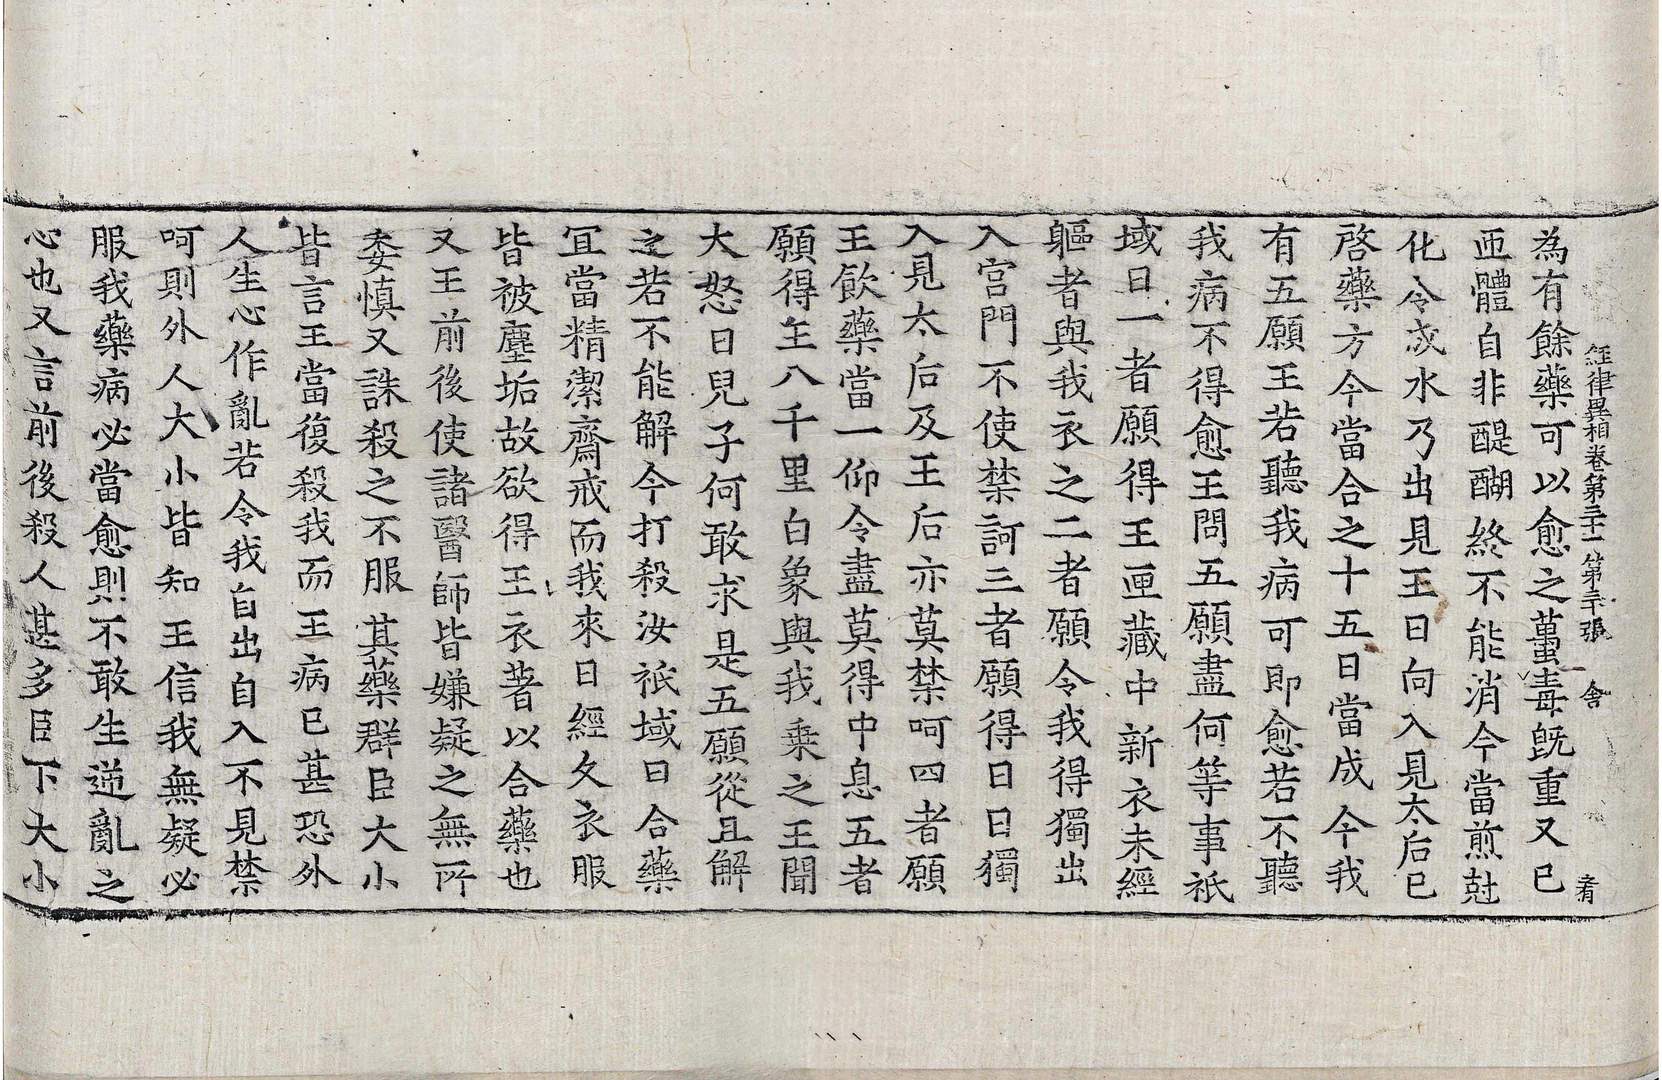 経律異相卷第三十一 第三張 舍
為有餘藥可以愈之蠆毒旣重又已
匝體自非醍醐終不能消今當煎尅
化令成水乃出見王曰向入見太后已
啓藥方今當合之十五日當成今我
有五願王若聽我病可即愈若不聽
我病不得愈王問五願盡何等事祇
域曰一者願得王匣藏中新衣未經
軀者與我衣之二者願令我得獨出
入宮門不使禁訶三者願得日日獨
入見太后及王后亦莫禁呵四者願
王飲藥當一仰令盡莫得中息五者
願得王八千里白象與我乗之王聞
大怒曰兒子何敢求是五願從且解
之若不能解今打殺汝祇域曰合藥
冝當精潔齋戒而我來日經久衣服
皆被塵垢故欲得王衣著以合藥也
又王前後使諸醫師皆嫌疑之無所
委慎又誅殺之不服其藥群臣大小
皆言王當復殺我而王病已甚恐外
人生心作亂若令我自出自入不見禁
呵則外人大小皆知王信我無疑必
服我藥病必當愈則不敢生逆亂之
心也又言前後殺人甚多臣下大小